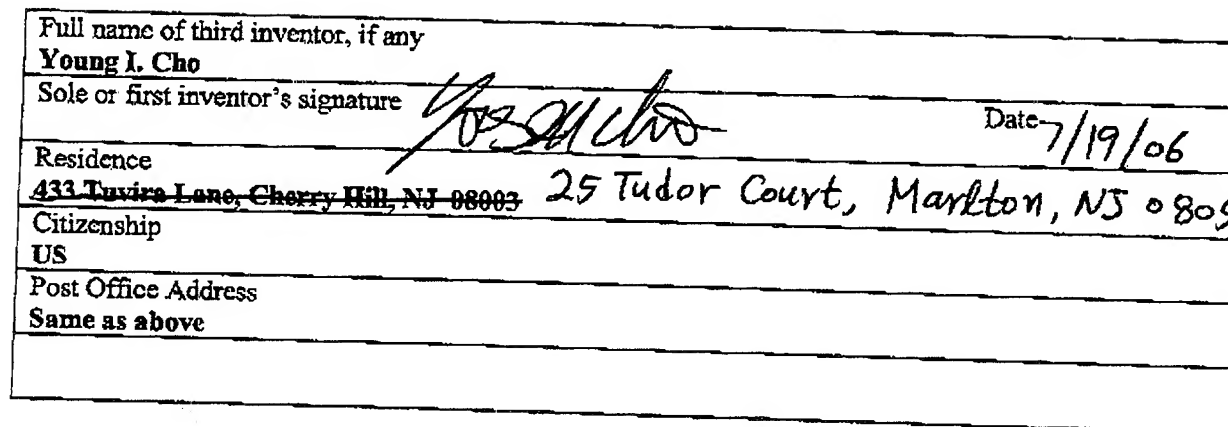 Full name of third inventor, if any
Young I. Cho
Sole or first inventor's signature Date 7/19/06
Residence
433 Tuvira Lane, Cherry Hill, NJ 08003 25 Tudor Court, Marlton, NJ 0805
Citizenship
US
Post Office Address
Same as above